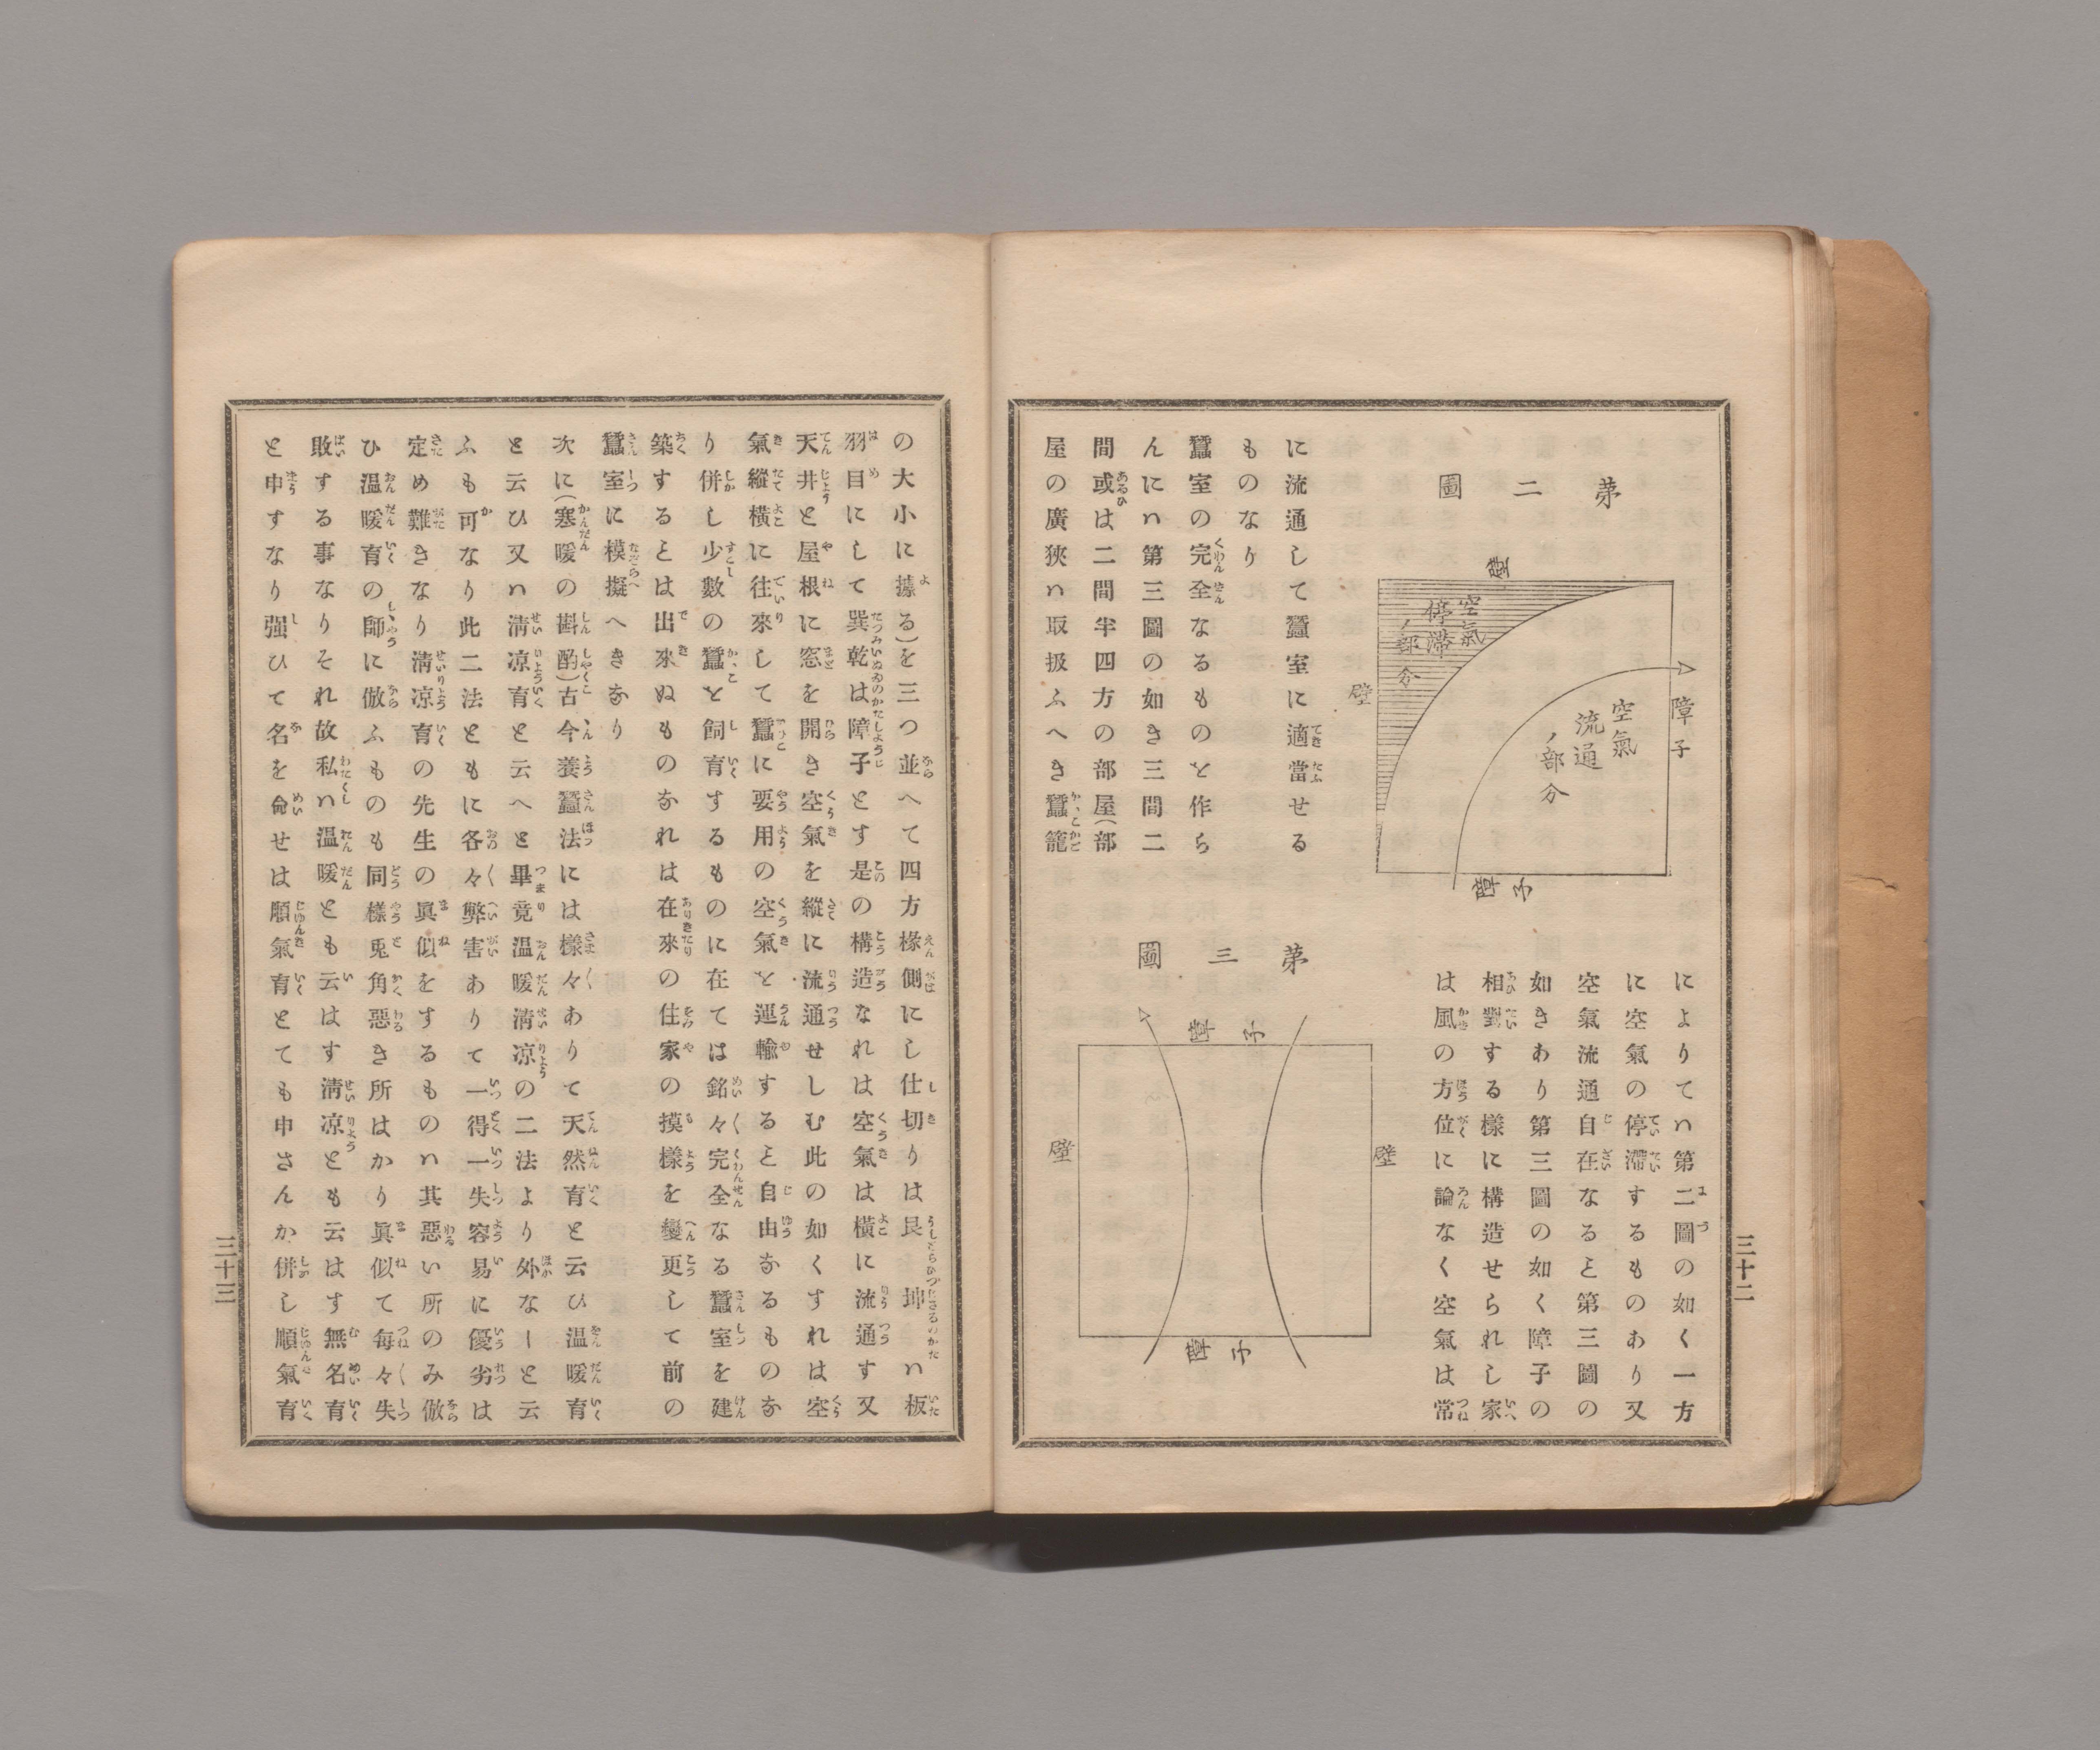 三十二
によりてハ第二圖の如く一方
に空氣の停滯するものあり又
空氣流通自在なると第三圖の
如きあり第三圖の如く障子の
相對する樣に構造せられし家
は風の方位に論なく空氣は常
第二圖
壁
空氣
停滯
ノ部分
壁
空氣
流通
ノ部分
障子
障子
に流通して蠶室に適當せる
ものなり
蠶室の完全なるものを作ら
んにハ第三圖の如き三間二
間或は二間半四方の部屋(部
屋の廣狹ハ取扱ふへき蠶籠
第三圖
障子
壁
壁
障子
三十三
の大小に據る)を三つ並へて四方椽側にし仕切りは艮坤ハ板
羽目にして巽乾は障子とす是の構造なれは空氣は橫に流通す又
天井と屋根に窓を開き空氣を縱に流通せしむ此の如くすれは空
氣縱橫に往來して蠶に要用の空氣を運輸すると自由なるものな
り併し少數の蠶を飼育するものに在ては銘々完全なる蠶室を建
築するとは出來ぬものなれは在來の住家の摸樣を變更して前の
蠶室に模擬へきなり
次に(寒暖の斟酌)古今養蠶法には樣々ありて天然育と云ひ温暖育
と云ひ又ハ淸凉育と云へと畢竟温暖淸凉の二法より外なしと云
ふも可なり此二法ともに各々弊害ありて一得一失容易に優劣は
定め難きなり淸凉育の先生の眞似をするものハ其惡い所のみ倣
ひ温暖育の師に倣ふものも同樣兎角惡き所はかり眞似て每々失
敗する事なりそれ故私ハ温暖とも云はす淸凉とも云はす無名育
と申すなり强ひて名を命せは順氣育とても申さんか併し順氣育